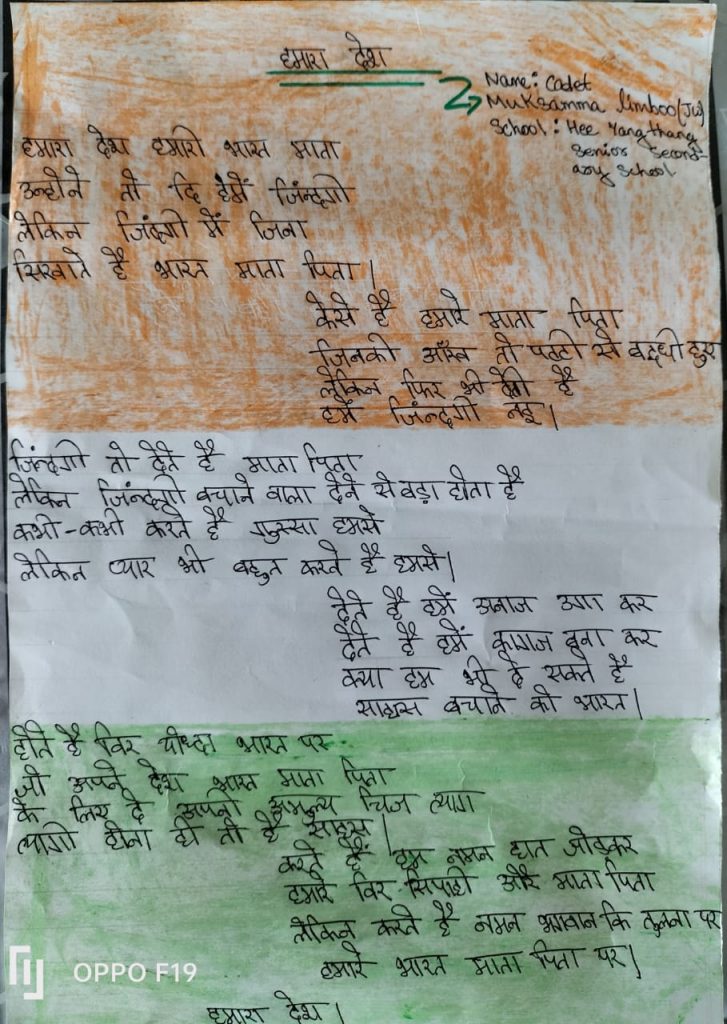 हमारा देश
Name: Cadet
Muksamma limboo(JW)
School: Hee Yangthang
Senior Second-
ary School
हमारा देश हमारी भारत माता
उन्होने तो दि हमें जिंन्दगी
लेकिन जिंदगी में जिना
सिखाते है भारत माता पिता।
कैसे है हमारे माता पिता
जिनकी आँख तो पटटी से बढ्धी हुए
लेकिन फिर भी देती है
हमें जिंन्दगी नई।
जिंन्दगी तो देते है माता पिता
लेकिन जिंन्दगी बचाने वाला देने से बड़ा होता है
कभी-कभी करते है गुस्सा हमसे
लेकिन प्यार भी बहुत करते है हमसे।
देते है हमें अनाज उगा कर
देते है हमें कागज बुना कर
क्या हम भी दे सकते है
साहास बचाने की भारत।
होते है विर योध्दा भारत पर
जो अपने देश भारत माता पिता
के लिए दे अपनी अमुल्य चिज त्याग
त्यागी होना ही तो है साहस।
करते है हम नमन हात जोड़कर
हमारे विर सिपाही और माता पिता
लेकिन करते है नमन भगवान कि तुलना पर
हमारे भारत माता पिता पर।
हमारा देश।
OPPO F19